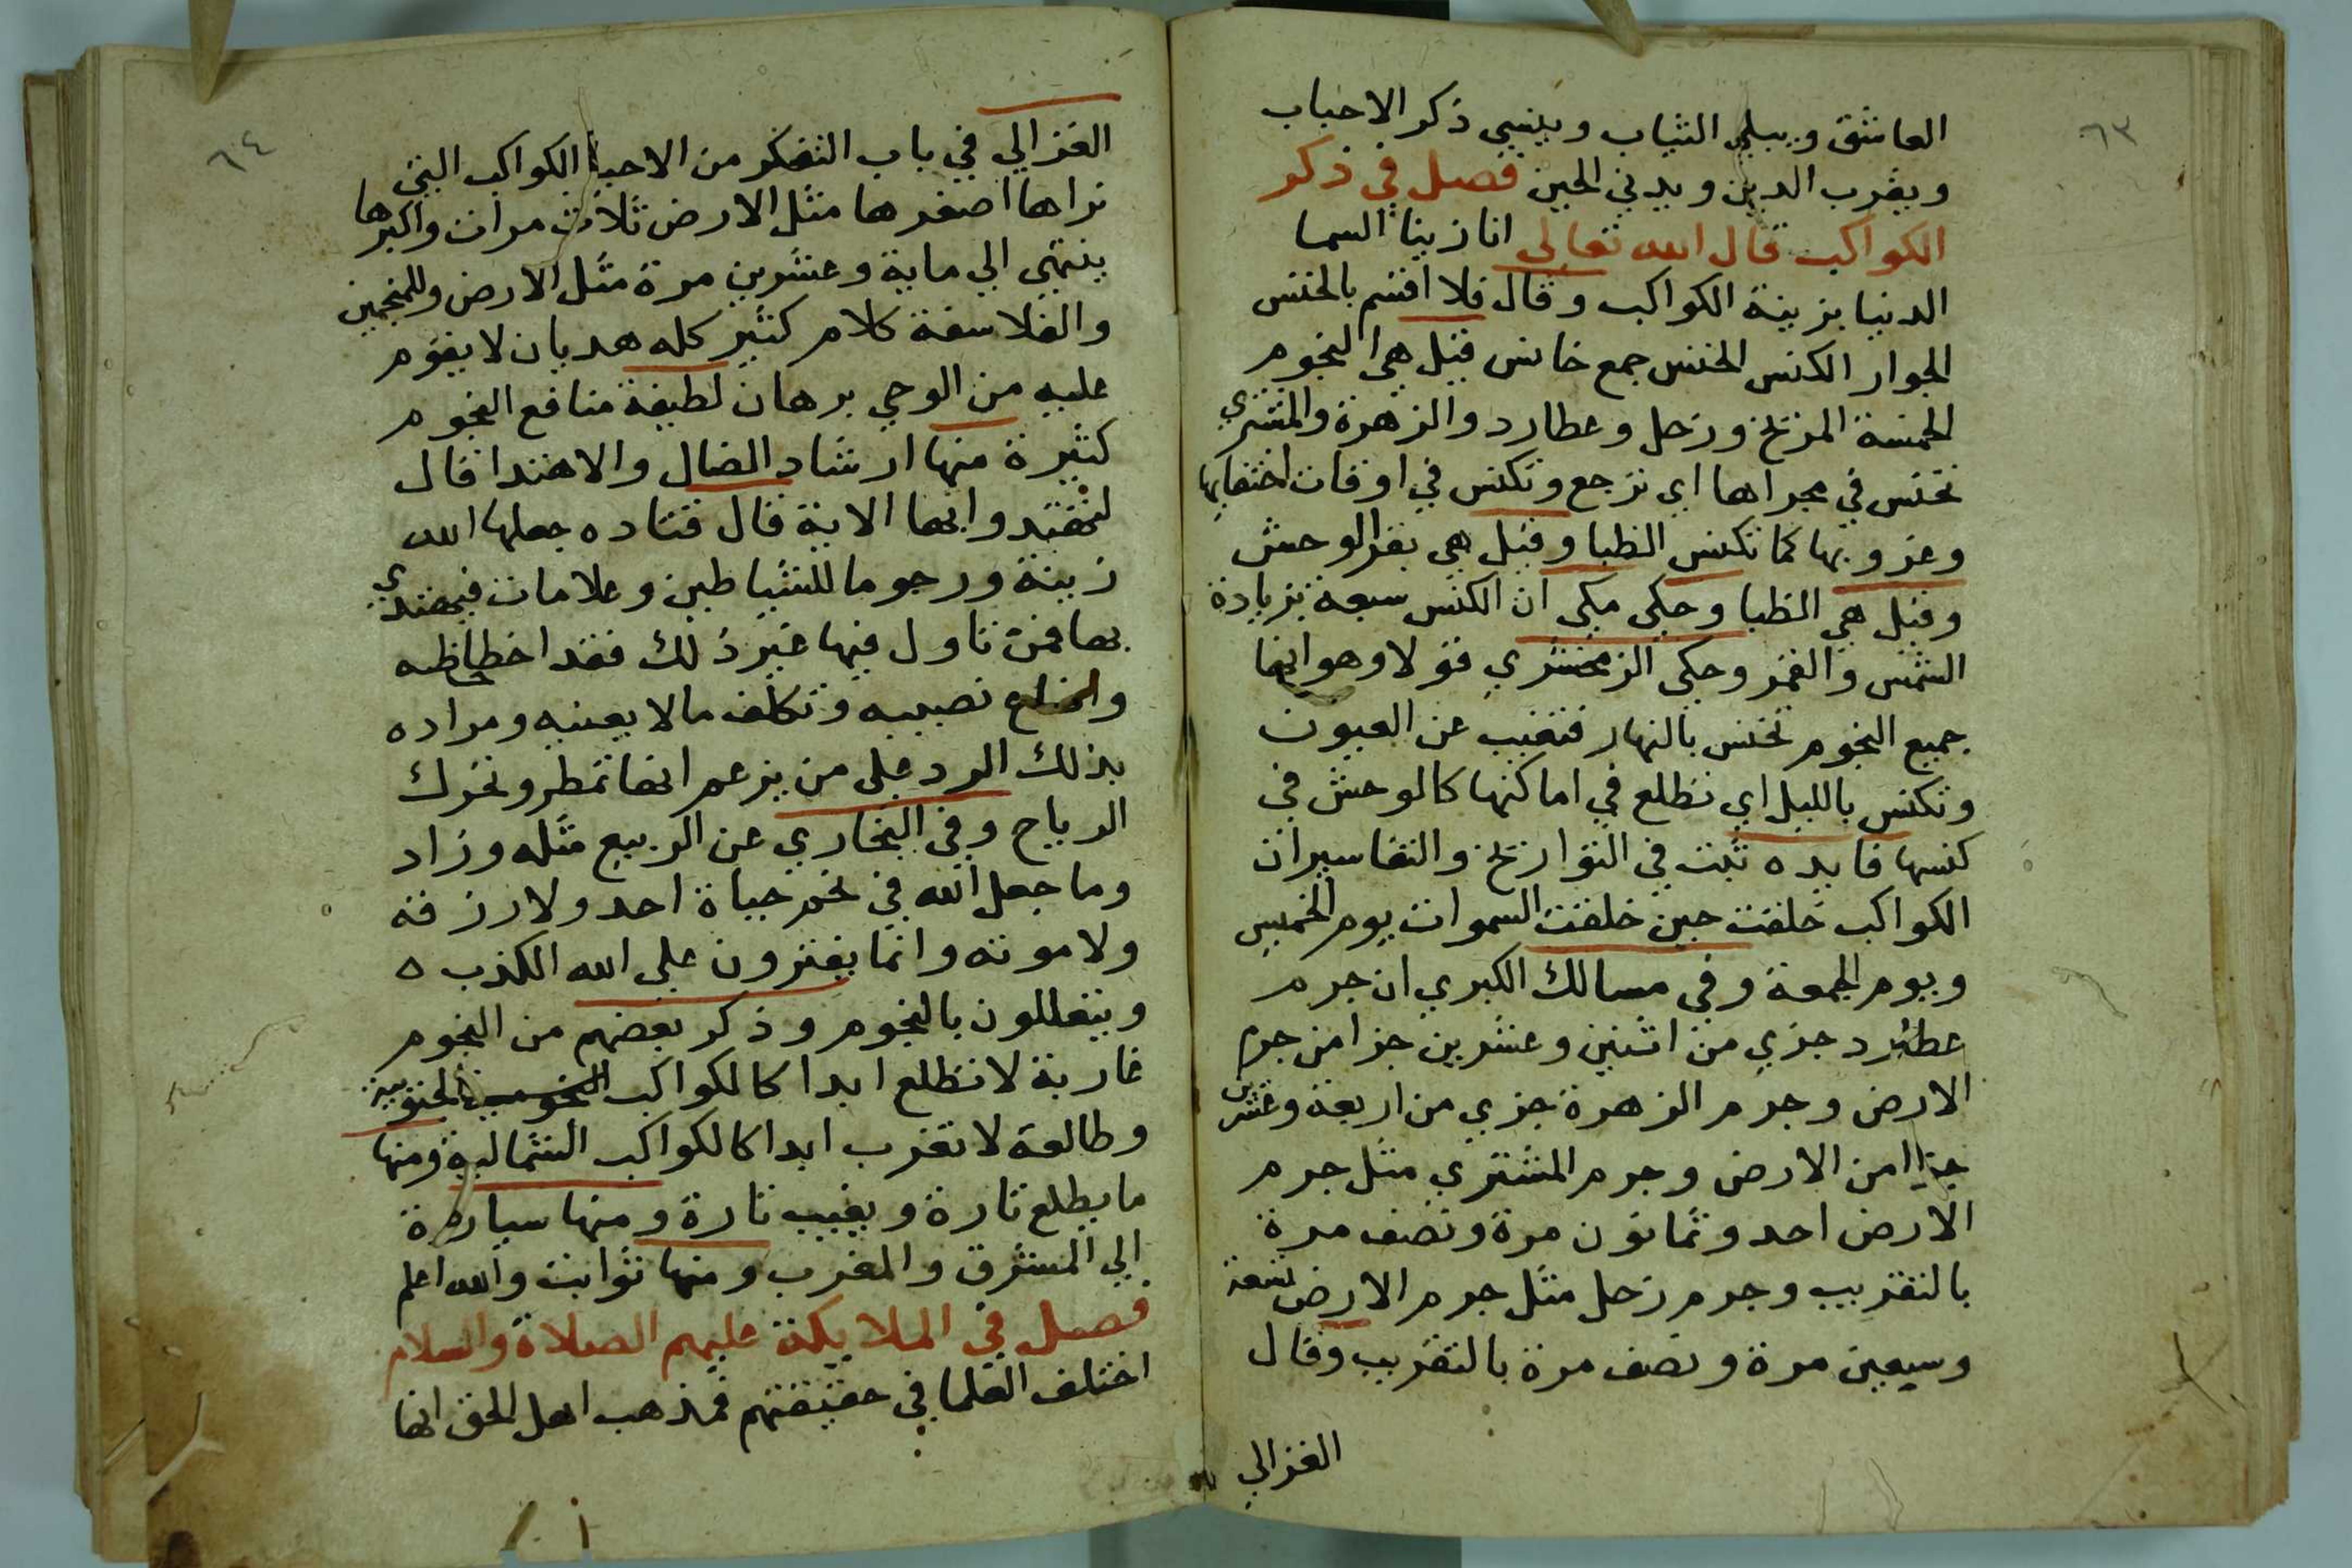 ٦٣
العاشق ويبلي الثياب وينسي ذكر الاحباب
ويقرب الدين ويدني الحين فصل في ذكر
الكواكب قال الله تعالي انا زينا السما
الدنيا بزينة الكواكب وقال فلا اقسم بالخنس
الجوار الكنس الخنس جمع خانس قيل هي النجوم
الخمسة المريخ وزحل وعطارد والزهرة والمشتري
تخنس في مجراها اي ترجع وتكنس في اوقات اختفايها
وغروبها كما تكنس الظبا وقيل هي بقر الوحش
وقيل هي الظبا وحكي مكي ان الكنس سبعة بزيادة
الشمس والقمر وحكي الزمخشري قولا وهو انها
جميع النجوم تخنس بالنهار فتغيب عن العيون
وتكنس بالليل اي تطلع في اماكنها كالوحش في
كنسها فايده ثبت في التواريخ والتفاسير ان
الكواكب خلقت حين خلقت السموات يوم الخميس
ويوم الجمعة وفي مسالك الكبري ان جرم
عطارد جزي من اثنين وعشرين جزا من جرم
الارض وجرم الزهرة جزي من اربعة وعشرين
جزا من الارض وجرم المشتري مثل جرم
الارض احد وثمانون مرة ونصف مرة
بالتقريب وجرم زحل مثل جرم الارض تسعة
وسبعين مرة ونصف مرة بالتقريب وقال
الغزالي
٦٤
الغزالي في باب التفكر من الاحيا الكواكب التي
نراها اصغرها مثل الارض ثلاث مرات واكبرها
ينتهي الي ماية وعشرين مرة مثل الارض وللمنجمين
والفلاسفة كلام كثير كله هديان لا يقوم
عليه من الوحي برهان لطيفة منافع النجوم
كثيرة منها ارشاد الضال والاهتدا قال
لتهتدوا بها الاية قال قتاده جعلها الله
زينة ورجوما للشياطين وعلامات فيهتدي
بها فمن تاول فيها غير ذلك فقد اخطا حظه
واضاع نصيبه وتكلف مالا يعنيه ومراده
بذلك الرد علي من يزعم انها تمطر وتحرك
الرياح وفي البخاري عن الربيع مثله وزاد
وما جعل الله في نجم حياة احد ولا رزقه
ولا موته وانما يفترون علي الله الكذب ه
ويتعللون بالنجوم وذكر بعضهم من النجوم
غاربة لا تطلع ابدا كالكواكب الجنوبية
وطالعة لا تغرب ابدا كالكواكب الشمالية ومنها
ما يطلع تارة ويغيب تارة ومنها سيارة
الي المشرق والمغرب ومنها ثوابت والله اعلم
فصل في الملايكة عليهم الصلاة والسلام
اختلف العلما في حقيقتهم فمذهب اهل الحق انها